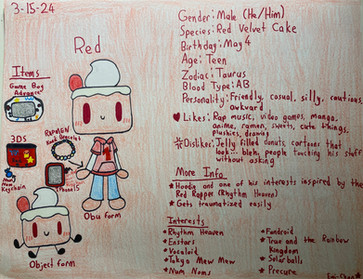 3-15-24
Red
Items
Game Boy
Advance
3DS
Num Nom
Keychain
Obu form
Object form
Gender: Male (He/Him)
Species: Red Velvet Cake
Birthday: May 4
Age: Teen
Zodiac: Taurus
Blood Type: AB
Personality: Friendly, casual, silly, cautious,
awkward
Likes: Rap music, video games, manga,
anime, ramen, sweets, cute things,
plushies, drawing
Dislikes: Jelly filled donuts, cartoons that
look... bleh, people touching his stuff
without asking
More Info
Hoodie and one of his interests inspired by the
Red Rapper (Rhythm Heaven)
Gets traumatized easily
Interests
Rhythm Heaven
Enstars
Vocaloid
Tokyo Mew Mew
Num Noms
Fundroid
True and the Rainbow
Kingdom
Solarballs
Precure